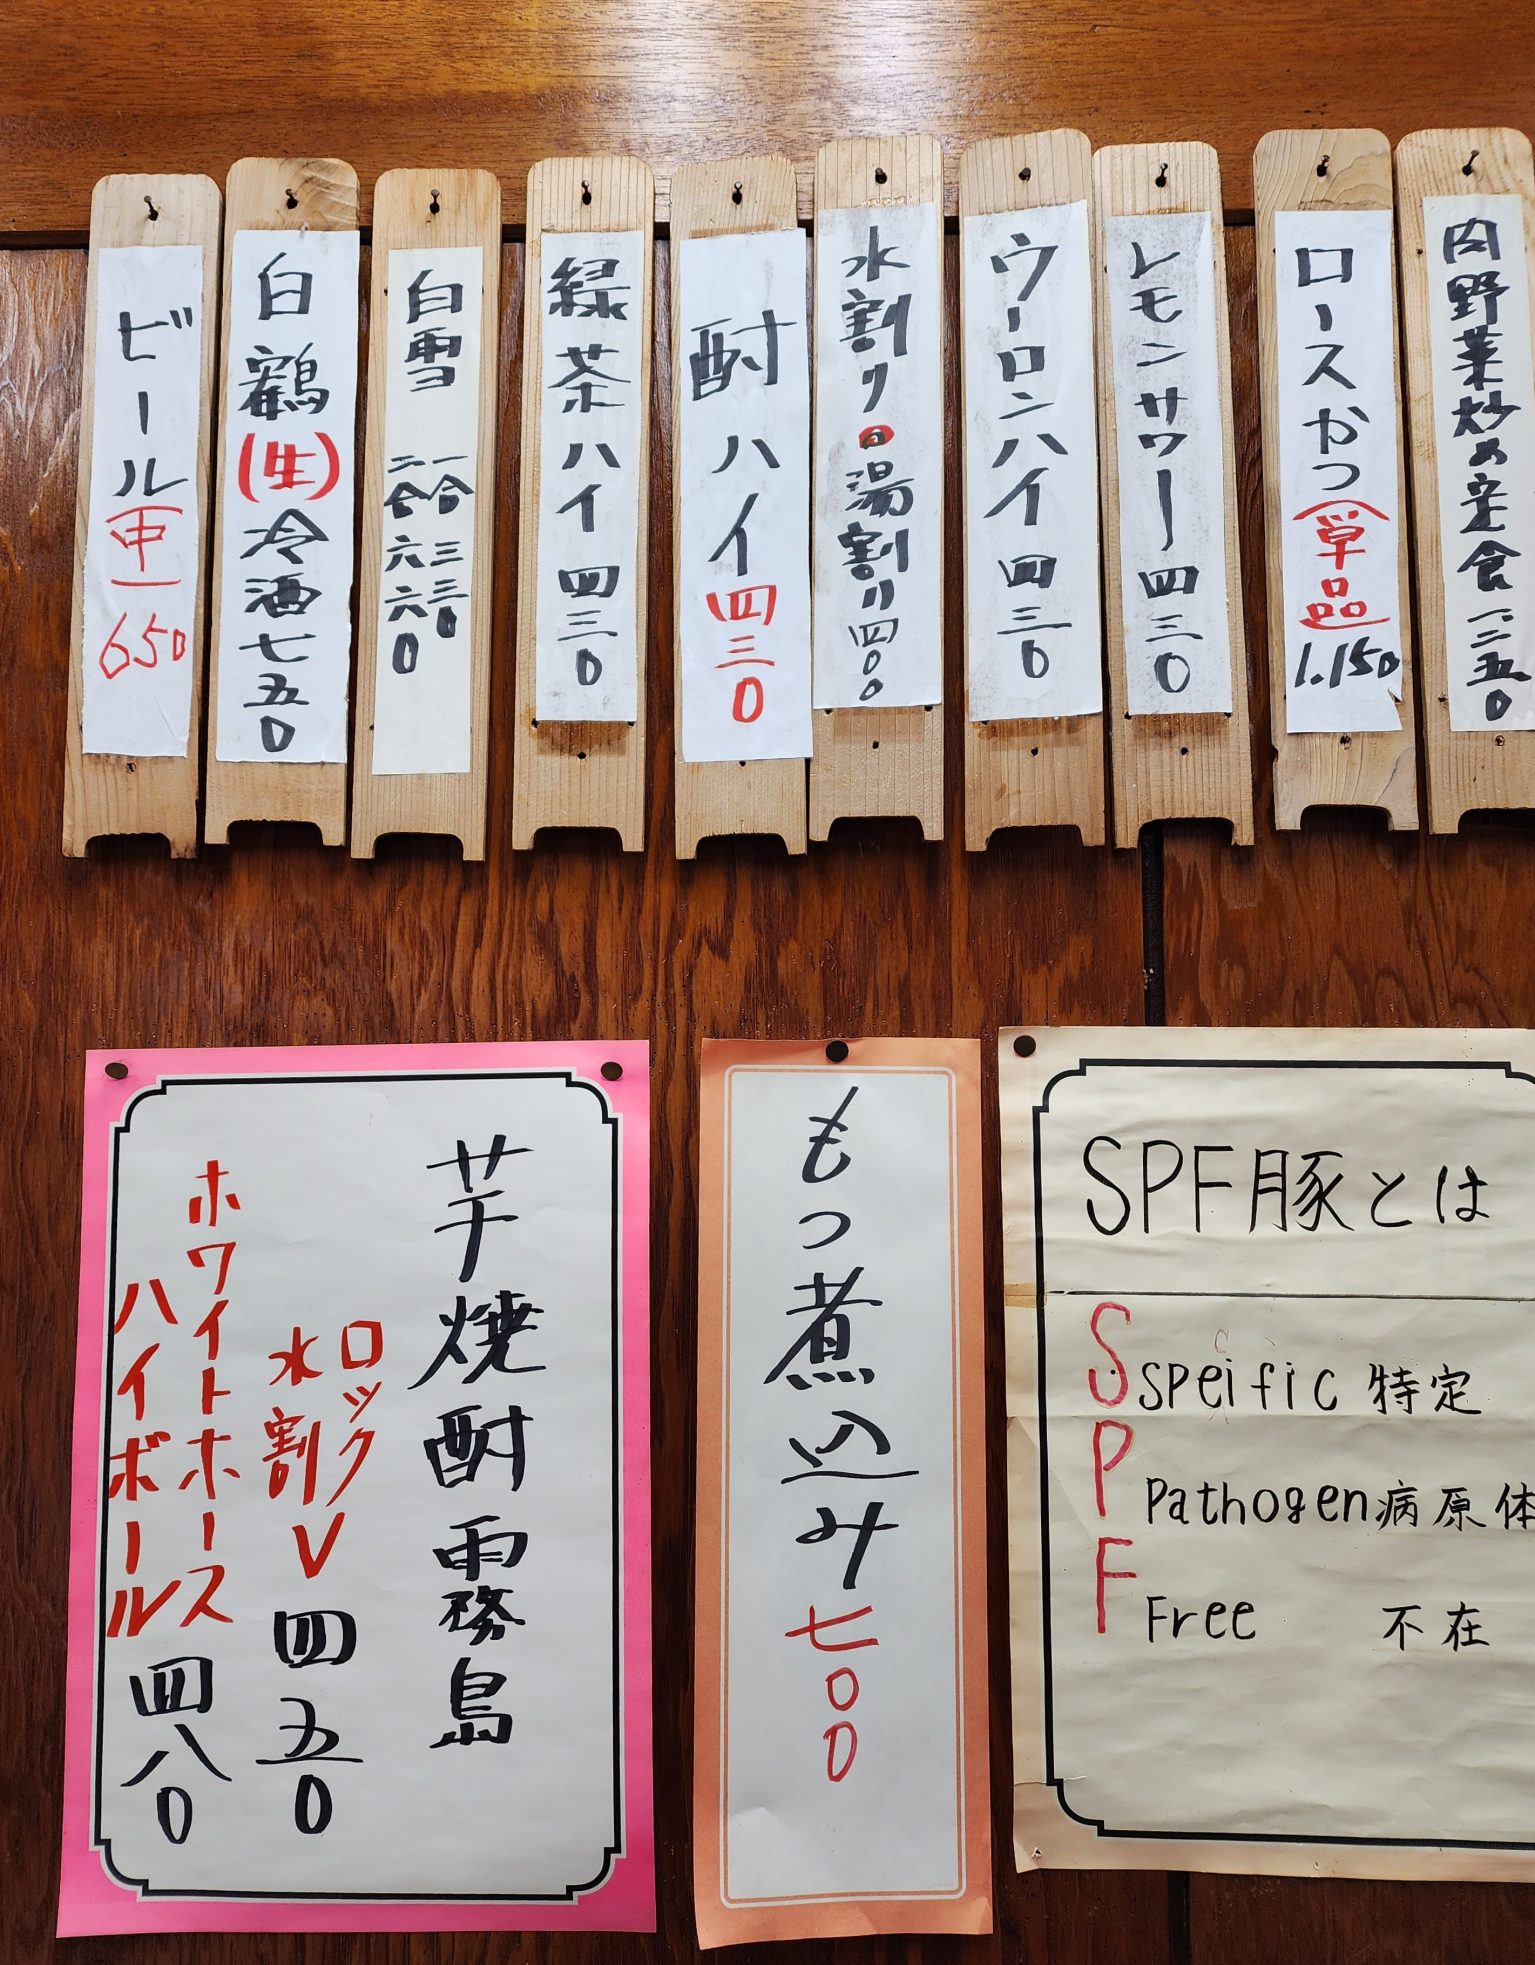 肉野菜炒め定食 一.二五0
ロースかつ(単品) 1.150
レモンサワー 四三0
ウーロンハイ 四三0
水割り・湯割り 四00
酎ハイ 四三0
緑茶ハイ 四三0
白雪 一合 三三0
二合 六六0
白鶴(生)冷酒 七五0
ビール(中) 650
SPF豚とは
S Speific 特定
P Pathogen 病原体
F Free 不在
もつ煮込み 七00
芋焼酎霧島
ロック
水割V 四五0
ホワイトホース
ハイボール 四八0